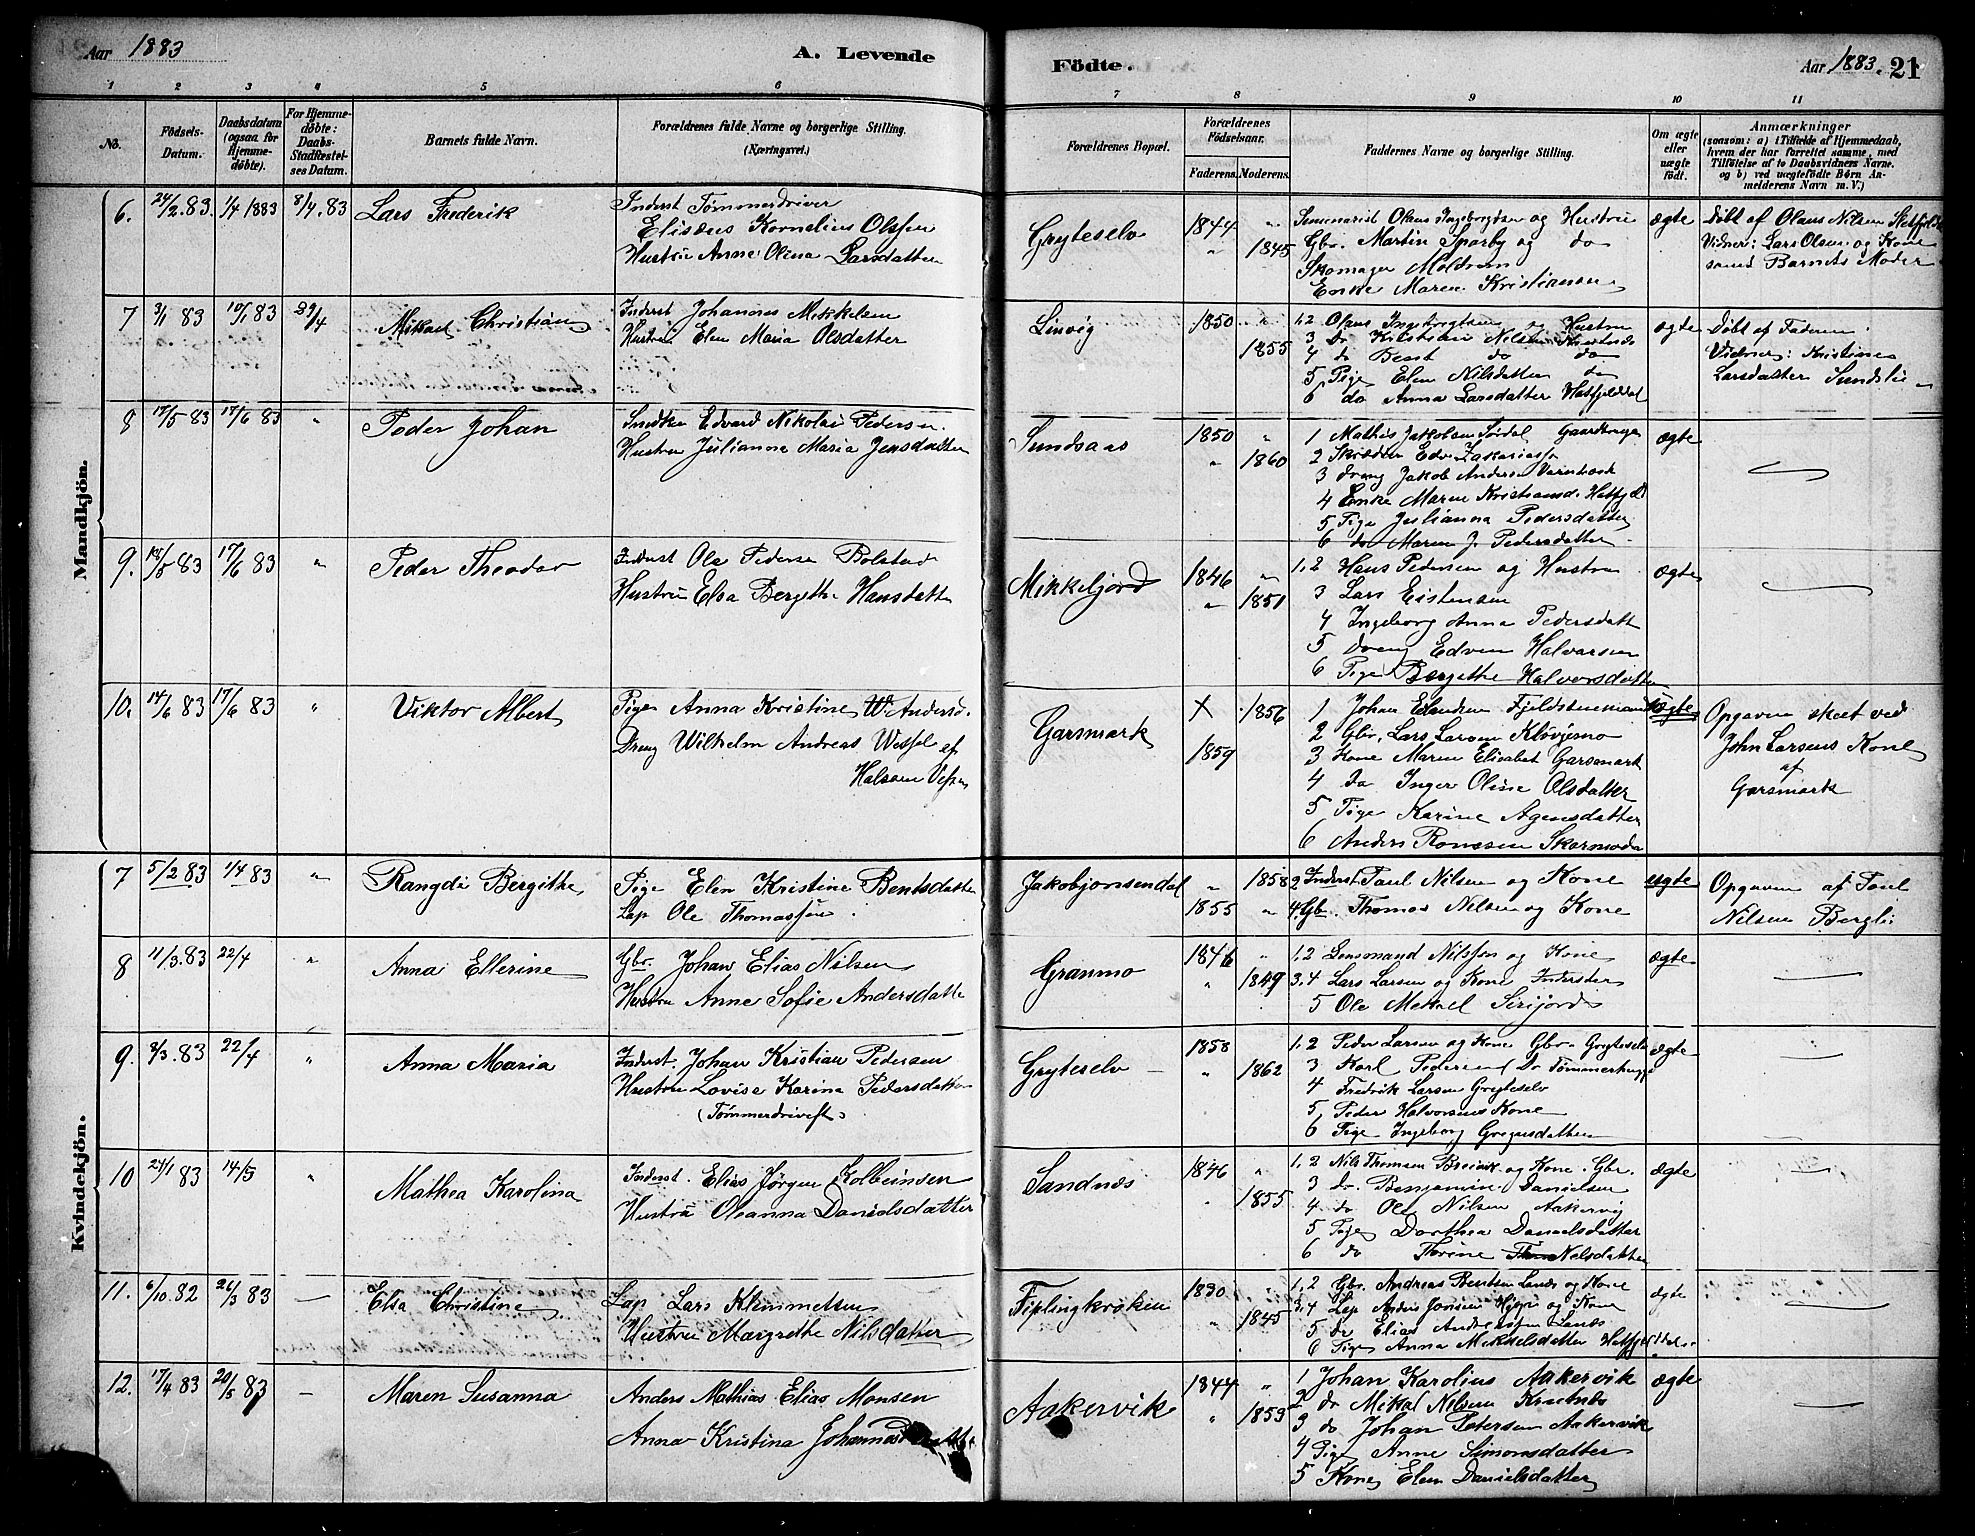 Aar 1883
A. Levende
Födte.
Aar 1883. 21
1 2 3 4 5 6 7 8 9 10 11
No.
Födsels-Datum.
Daabsdatum (ogsaa for Hjemmedöbte).
For Hjemmedöbte: Daabs-Stadfæstelses Datum.
Barnets fulde Navn.
Forældrenes fulde Navne og borgerlige Stilling.
(Næringsvei.)
Forældrenes Bopæl.
Forældrenes Födselsaar.
Faderens. Moderens.
Faddernes Navne og borgerlige Stilling.
Om ægte eller uægte födt.
Anmærkninger
(saasom: a) i Tilfælde af Hjemmedaab, hvem der har forrettet samme, med Tilföielse af to Daabsvidners Navne, og b) ved uægtefödte Börn Anmelderens Navn m. V.)
Mandkjön.
6. 24/2.83. 1/4 1883 8/4.83 Lars Frederik
Inderst Tömmerdriver
Elisæus Kornelius Olssen
Hustru Anne Olina Larsdatter
Gryteselv 1844 " " 1845
Seminarist Olaus Ingebrigtsen og Hustru
Gbr. Martin Sparby og do
Skomager Moldrem
Enke Maren Kristiansen
ægte
Döbt af Olaus Nilsen
Vidner: Lars Olsen og Kone
samt Barnets Moder
7 3/1 83 10/1 83 29/4 Mikael Christian
Inderst Johannes Mikkelsen
Hustru Elen Maria Olsdatter
Linvig 1850 " 1855
1,2 Olaus Ingebrigtsen og Hustru
3 do Kristian Nilsen
4 do Bent do do
5 Pige Elen Nilsdatter do
6 do Anna Larsdatter Hatfjelddal
ægte
Döbt af Faderen
Vidner: Kristine
Larsdatter
8 17/5 83 17/6 83 " Peder Johan
Snedker Edvard Nikolai Pedersen.
Hustru Julianna Maria Jensdatter
Sundsaas 1850 " " 1860
1 Mathis Jakobsen Sördal
2 Skrædder Edv. Zakariass
3 Dreng Jakob Andersen
4 Enke Maren Kristiansd. Hatfjd
5 Pige Julianna Pedersdatter
6 do Maren J. Pedersdatter
ægte
9. 18/5 83 17/6 83 " Peder Theodor
Inderst Ole Pedersen Bolstad
Hustru Elsa Bergitte Hansdatter
Mikkeljord 1846 " " 1851
1,2 Hans Pedersen og Hustru
3 Lars Eistensen
4 Ingeborg Anna Pedersdatt
5 Dreng Edvin Halvorsen
6 Pige Bergithe Halvorsdatter
ægte
10. 14/6 83 17/6 83 " Viktor Albert
Pigen Anna Kristine W. Andersd.
Dreng Wilhelm Andreas Wessel af
Halsøen Vefsen
Garsmark + 1856 1859
1 Johan Erlandsen
2 Gbr. Lars Larsen Klövjemo
3 Kone Maren Elisabet Garsmark
4 do Inger Oline Olsdatter
5 Pige Karine Agensdatter
6 Anders Skarmoda
uægte
Opgaven skeet ved
John Larsens Kone
af
Garsmark
Kvindekjön.
7 5/2 83 1/4 83 " Rangdi Bergithe
Pige Elen Kristine Bentsdatter
Lap Ole Thomassen.
Jakobjonsendal " 1858 1855 "
2 Inderst Paul Nilsen og Kone
4. Gbr. Thomas Nilsen og Kone
uægte
Opgaven af Paul
Nilsen Bergli
8 11/3.83 22/4 " Anna Ellerine
Gbr. Johan Elias Nilsen
Hustru Anne Sofie Andersdatter
Granmo 1846 " " 1849
1,2 Nilssen og Kone
3,4 Lars Larsen og Kone Inderster
5 Ole Mekael Sirijord
ægte
9. 3/3.83 22/4 " Anna Maria
Inderst Johan Kristian Pedersen
Hustru Lovise Karina Pedersdatter
(Tömmerdrivift)
Gryteselv 1858 " 1862
1,2 Peder Larsen og Kone Gbr. Gryteselv
3 Karl Pedersen Do Tömmerhugger
4 Fredrik Larsen Gryteselv
5 Peder Halvorsens Kone
6 Pige Ingeborg Gregersdatter
ægte
10 24/1 83 14/5 " Mathea Karolina
Inderst. Elias Jörgen Kolbeinsen
Hustru Oleanna Danielsdatter
Sandnæs 1846 " 1855
1,2 Nils Thomsen Breivik og Kone. Gbr.
3 do Benjamin Danielsen
4 do Ole Nilsen Aakervig
5 Pige Dorthea Danielsdatter
6 do Torine Nilsdatter
ægte
11. 6/10.82 26/3 83 — Elsa Christine
Lap Lars Klemmetsen
Hustru Margrethe Nilsdatter
Fiplingkroken 1830 " 1845
1,2 Gbr. Andreas Bentsen Lands og Kone
3,4 Lap Anders Jonsen og Kone
5 do Elias Anderssen Lands
6 Pige Anna Mikkelsdatter Hatfjelddal.
ægte
12. 17/4 83 20/5 83 — Maren Susanna
Anders Mathias Elias Monsen
Anna Kristina Johannesdatter
Aakervik 1844 " " 1853
1 Johan Karolius Aakervik
2 do Mikal Nilsen
3 do Johan Petersen Aakervik
4 Pige Anne Simonsdatter
5 Kone Elen Danielsdatter
ægte